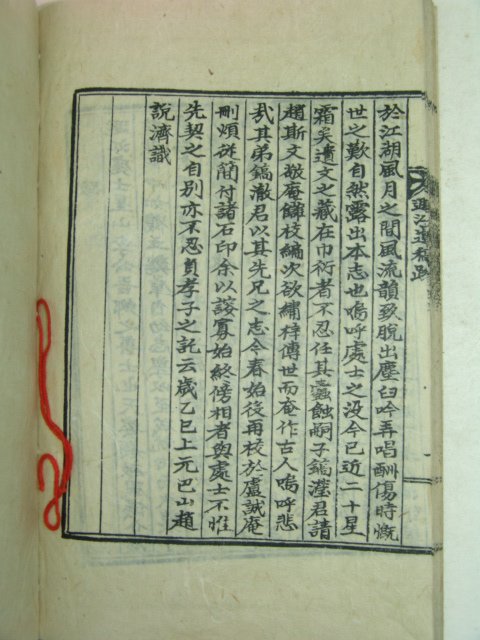 於江湖風月之間風流韻致脫出塵臼吟弄唱酬傷時慨
世之歎自然露出本志也嗚呼處士之沒今已近二十星
霜矣遺文之藏在巾衍者不忍任其蠹蝕嗣子鎬瀅君請
趙斯文敬庵讎校編次欲繡梓傳世而庵作古人嗚呼悲
哉其弟鎬澈君以其先兄之志今春始役再校於盧誠庵
刪煩從簡付諸石印余以諓寡始終傍相者與處士不惟
先契之自別亦不忍負孝子之託云歲乙巳上元巴山趙
說濟識
遺稿跋